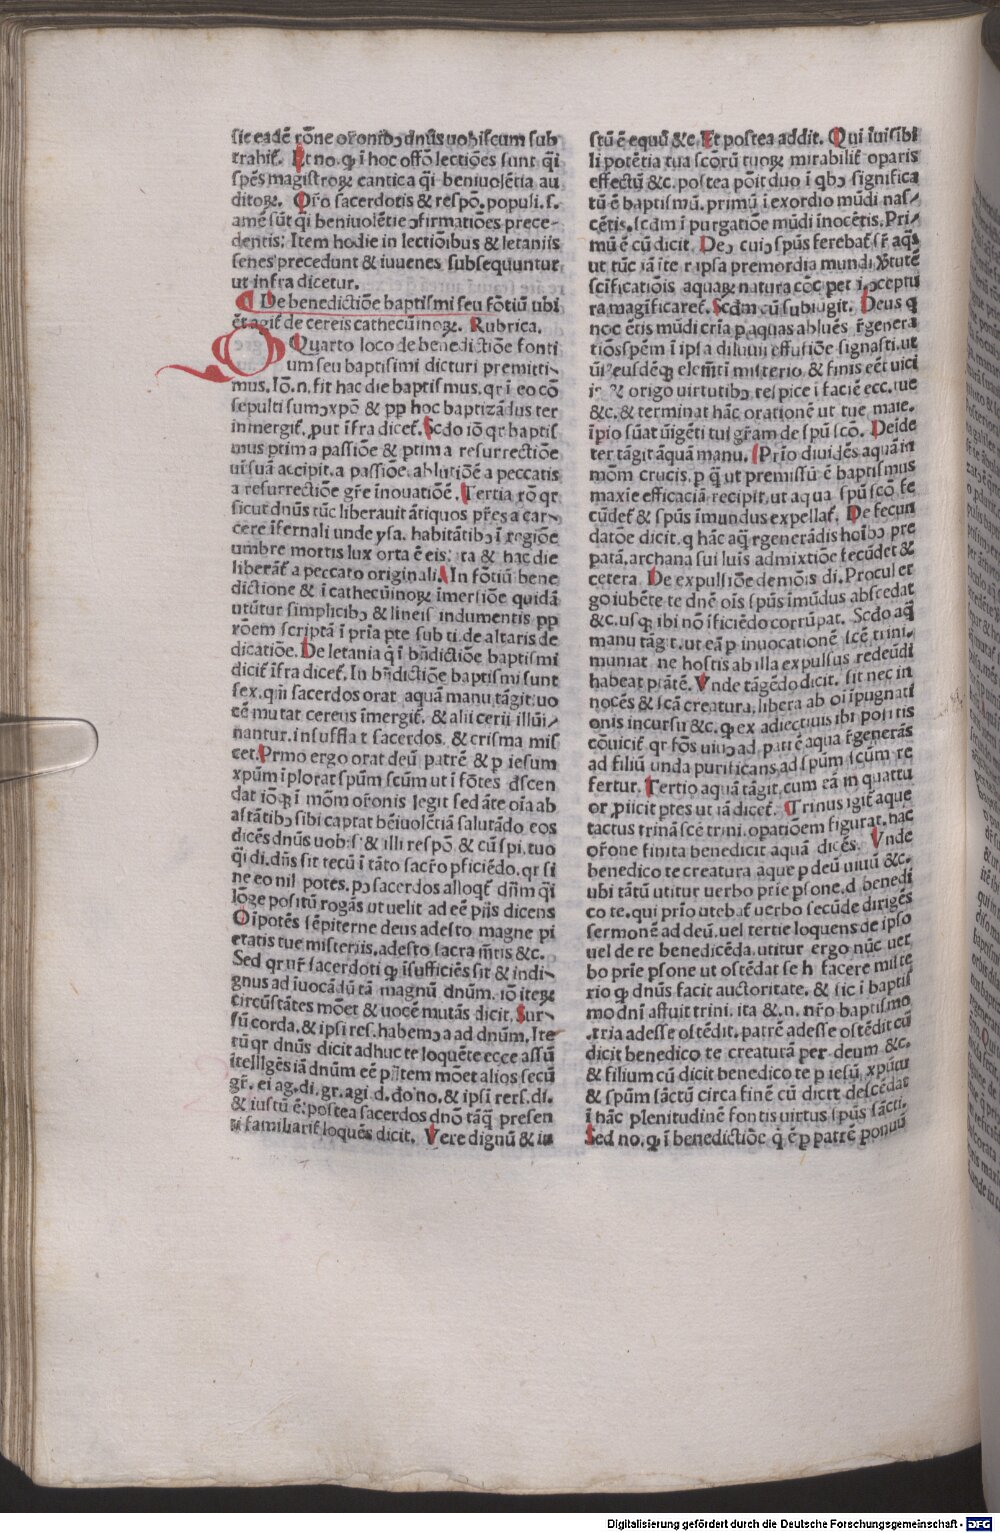 sic eadē rōne or̄onib᷒ dn̄us uobiſcum ſub
trahit̄. Et no. ꝙ ī hoc offō lectiōes ſunt q̄i
ſpēs magiſtroꝝ cantica q̄i beniuolētia au
ditoꝝ. Or̄o ſacerdotis & reſpō. populi. ſ.
amē ſūt q̄i beniuolētie ↄfirmatiōes prece-
dentis: Item hodie in lectiōibus & letaniis
ſenes precedunt & iuuenes ſubſequuntur
ut infra dicetur.
De benedictiōe baptiſmi ſeu fōtiū ubi
ēt agit̄ de cereis cathecūinoꝝ. Rubrica.
Quarto loco de benedictiōe fonti
um ſeu baptiſimi dicturi premitti-
mus. Iō. n. fit hac die baptiſmus. qr ī eo cō
ſepulti ſumↄ xpō & pp hoc baptizādus ter
inmergit̄. ꝓut īfra dicet̄. Scdo iō qr baptiſ
mus ptim a paſſiōe & ptim a reſurrectiōe
uī ſuā accipit. a paſſiōe. ablutiōē a peccatis
a reſurrectiōe gr̄e īnouatiōē. Tertia rō qr
ſicut dn̄us tūc liberauit ātiquos pr̄es a car-
cere īfernali unde yſa. habitātibↄ ī regiōe
umbre mortis lux orta ē eis: ita & hac die
liberāt̄ a peccato originali. In fōtiū bene
dictione & ī cathecūinoꝝ īmerſiōe quidā
utūtur ſimplicibↄ & lineis indumentis pp
rōem ſcriptā ī prīa pte ſub ti. de altaris de
dicatiōe. De letania q̄ ī bn̄dictiōe baptiſmi
dicit̄ īfra dicet̄. In bn̄dictiōe baptiſmi ſunt
ſex. qm̄ ſacerdos orat aquā manu tāgit: uo
cē mutat cereus īmergit̄. & alii cerii illūi-
nantur. inſufflat ſacerdos. & criſma miſ
cet. Prmo ergo orat deū patrē & p ieſum
xpūm īplorat ſpūm ſcūm ut ī fōtes dſcen
dat iō ꝙ ī mōm or̄onis legit ſed āte oīa ab
aſtātibↄ ſibi captat bēiuolētiā ſalutādo eos
dicēs dn̄us uob: ſ: & illi reſpō. & cū ſpi. tuo
q̄i di. dn̄s ſit tecū ī tāto ſacr̄o pficiēdo. qr ſi
ne eo nil potes. pↄ ſacerdos alloqt̄ dn̄m q̄i
lōge poſitū rogās ut uelit ad eē piis dicens
Oīpotēs ſēpiterne deus adeſto magne pi
etatis tue miſteriis. adeſto ſacra m̄tis &c.
Sed qr ur̄ ſacerdoti ꝙ īſufficiēs ſit & indi-
gnus ad iuocādū tā magnū dnūm. iō iteꝝ
circūſtātes mōet & uocē mutās dicit. Sur-
ſū corda. & ipſi reſ. habemↄ a ad dnūm. Ite
tū qr dnūs dicit adhuc te loquēte ecce aſſū
ītelllgēs iā dnūm eē pn̄tem mōet alios ſecū
gr̄. ei ag. di. gr. agi d. do no. & ipſi rerſ. di.
& iuſtū ē: poſtea ſacerdos dnō tāq̄ preſen
ti familiarit̄ loquēs dicit. Vere dignū & iu
ſtū ē equū &c. Et poſtea addit. Qui īuiſibi
li potētia tua ſcōrū tuoꝝ mirabilit̄ oparis
effectū &c. poſtea pōit duo ī qbↄ ſignifica
tū ē baptiſmū. primū ī exordio mūdi naſ-
cētis. ſcdm ī purgatiōe mūdi īnocētis. Pri
mū ē cū dicit. Deↄ cuiↄ ſpūs ferebat̄ ſr̄ aq̄s
ut tūc iā īte r ipſa premordia mundi x̄tutē
ſcificatiōis aquaꝝ natura cōc pet ī ↄceptu
ra magīficaret̄. Scdm cū ſubiūgit. Deus q
noc ētis mūdi crīa p aquas abluēs r̄genera
tiōs ſpēm ī ipſa diluuii effuſiōe ſignaſti. ut
uī eiuſdēqꝫ elem̄ti miſterio & finis eēt uici
is & origo uirtutibↄ reſpice ī faciē ecc. tue
&c. & terminat hāc orationē ut tue maie.
īpio ſūat ūigēti tui gr̄am de ſpū ſcō. Deīde
ter tāgit āquā manu. Prīo diuidēs aquā in
mōm crucis. p q̄ ut premiſſū ē baptiſmus
maxie efficaciā recipit. ut aqua ſpū ſcō fe
cūdet̄ & ſpūs īmundus expellat̄. De fecun
datōe dicit. q hāc aq̄ rgenerādis hoībↄ pre
patā. archana ſui luīs admixtiōe fecūdet &
cetera. De expulſiōe demōis di. Procul er
go iubēte te dnē oīs ſpūs īmūdus abſcedat
&c. uſqꝫ ibi nō īficiēdo corrūpat. Scdo aq̄
manu tāgit. ut eā p inuocationē ſcē trini.
muniat ne hoſtis ab illa expulſus redeūdi
habeat pr̄atē. Vnde tāgēdo dicit. ſit nec in
nocēs & ſcā creatura. libera ab oī īpugnati
onis incurſu &c. ꝙ ex adiectiuis ibi poſitis
cōuicit̄. qr fōs uiuↄ ad patrē aqua r̄generās
ad filiū unda purificans ad ſpūm ſcūm re
fertur. Tertio aquā tāgit. cum eā in quattu
or ꝓiicit ptes ut iā dicet̄. Trinus igit̄ aque
tactus trinā ſcē trini. opatiōem figurat. hac
or̄one finita benedicit aquā dicēs. Vnde
benedico te creatura aque p deū uiuū &c.
ubi tātū utitur uerbo prīe pſone. d. benedi
co te. qui prīo utebat̄ uerbo ſecūde dirigēs
ſermonē ad deū. uel tertie loquens de ipſo
uel de re benedicēda. utitur ergo nūc uer
bo prīe pſone ut oſtēdat ſe h facere miſte
rio ꝙ dnūs facit auctoritate. & ſic ī baptiſ
mo dnī affuit trini. ita & .n. nr̄o baptiſmo
.tria adeſſe oſtēdit. patrē adeſſe oſtēdit cū
dicit benedico te creaturā per deum &c.
& filium cū dicit benedico te p ieſū xpūtu
& ſpūm ſāctū circa finē cū dicit deſcēdat
ī hāc plenitudinē fontis uirtus ſpūs ſācti.
Sed no. ꝙ ī benedictiōe q̄ ē p patrē ponuū
Digitalisierung gefördert durch die Deutsche Forschungsgemeinschaft - DFG